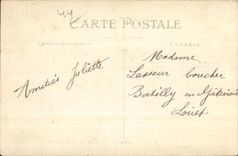 44
CARTE POSTALE
Amitiés Juliette
Madame
Lasseur boucher
Batilly en Gâtinais
Loiret